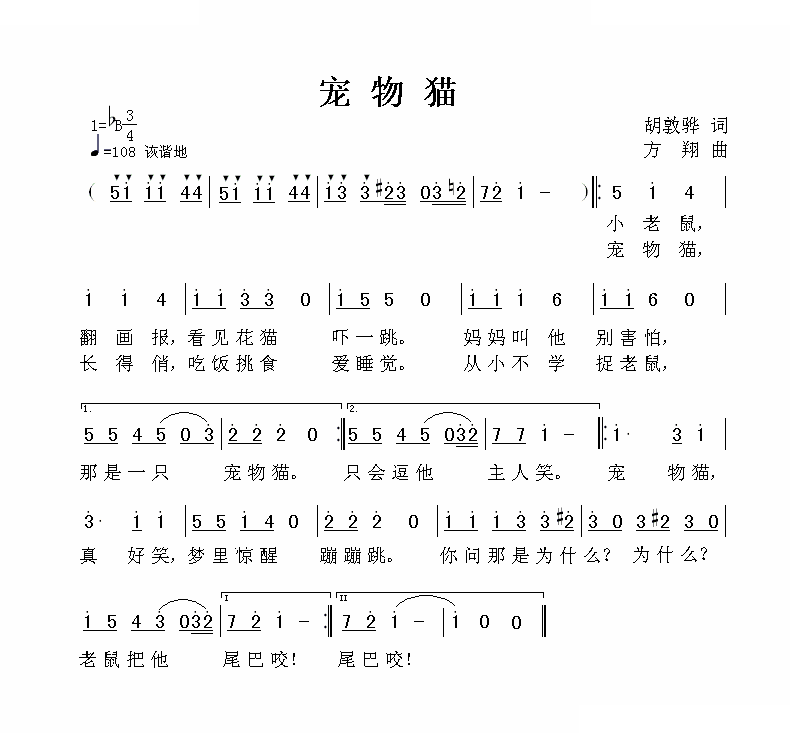 宠物猫
1=♭B 3/4
胡敦骅 词
♩=108 诙谐地
方翔 曲
( 51 11 44 | 51 11 44 | 13 3 #23 03♮2 | 72 1 - ) ‖: 5 1 4 |
小老鼠,
宠物猫,
1 1 4 | 11 33 0 | 15 5 0 | 11 1 6 | 11 6 0 |
翻画报,看见花猫 吓一跳。 妈妈叫他 别害怕,
长得俏,吃饭挑食 爱睡觉。 从小不学 捉老鼠,
1. 2.
55 45 03 | 22 2 0 :‖ 55 45 032 | 77 1 - ‖: 1· 3 1 |
那是一只 宠物猫。 只会逗他 主人笑。 宠 物猫,
3· 1 1 | 55 14 0 | 22 2 0 | 11 13 3#2 | 30 3#2 30 |
真 好笑,梦里惊醒 蹦蹦跳。 你问那是为什么? 为什么?
I II
15 43 032 | 72 1 - :‖ 72 1 - | 1 0 0 ‖
老鼠把他 尾巴咬! 尾巴咬!